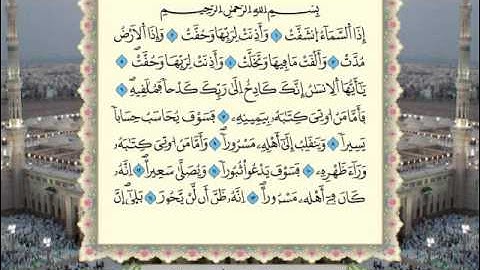 بِسْمِ اللَّهِ الرَّحْمَٰنِ الرَّحِيمِ
إِذَا السَّمَاءُ انشَقَّتْ ۝ وَأَذِنَتْ لِرَبِّهَا وَحُقَّتْ ۝ وَإِذَا الْأَرْضُ
مُدَّتْ ۝ وَأَلْقَتْ مَا فِيهَا وَتَخَلَّتْ ۝ وَأَذِنَتْ لِرَبِّهَا وَحُقَّتْ ۝
يَا أَيُّهَا الْإِنسَانُ إِنَّكَ كَادِحٌ إِلَىٰ رَبِّكَ كَدْحًا فَمُلَاقِيهِ ۝
فَأَمَّا مَنْ أُوتِيَ كِتَابَهُ بِيَمِينِهِ ۝ فَسَوْفَ يُحَاسَبُ حِسَابًا
يَسِيرًا ۝ وَيَنقَلِبُ إِلَىٰ أَهْلِهِ مَسْرُورًا ۝ وَأَمَّا مَنْ أُوتِيَ كِتَابَهُ
وَرَاءَ ظَهْرِهِ ۝ فَسَوْفَ يَدْعُو ثُبُورًا ۝ وَيُصَلَّىٰ سَعِيرًا ۝ إِنَّهُ
كَانَ فِي أَهْلِهِ مَسْرُورًا ۝ إِنَّهُ ظَنَّ أَن لَّن يَحُورَ ۝ بَلَىٰ إِنَّ